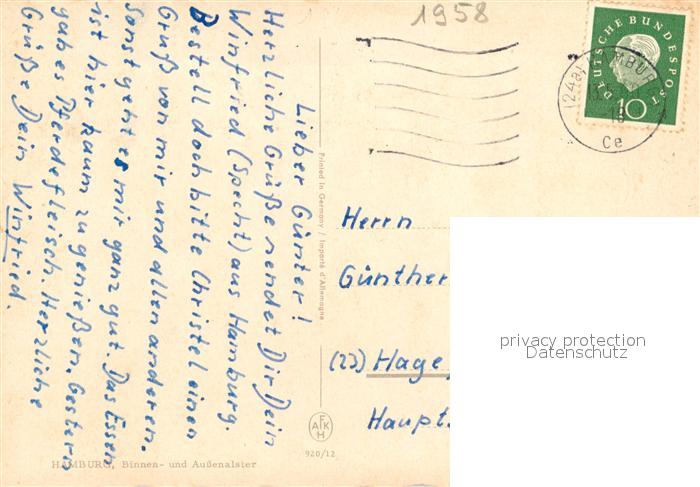 1958
DEUTSCHE BUNDESPOST
10
(24a) HAMBURG
Ce
Lieber Günter!
Herzliche Grüße sendet Dir Dein
Winfried (Specht) aus Hamburg.
Bestell doch bitte Christel einen
Gruß von mir und allen anderen.
Sonst geht es mir ganz gut. Das Essen
ist hier kaum zu genießen. Gestern
gab es Pferdefleisch. Herzliche
Grüße Dein Winfried.
Printed in Germany / Importé d'Allemagne
Herrn
Günther
(23) Hage
Haupt
privacy protection
Datenschutz
AFKH
920/12
HAMBURG, Binnen- und Außenalster